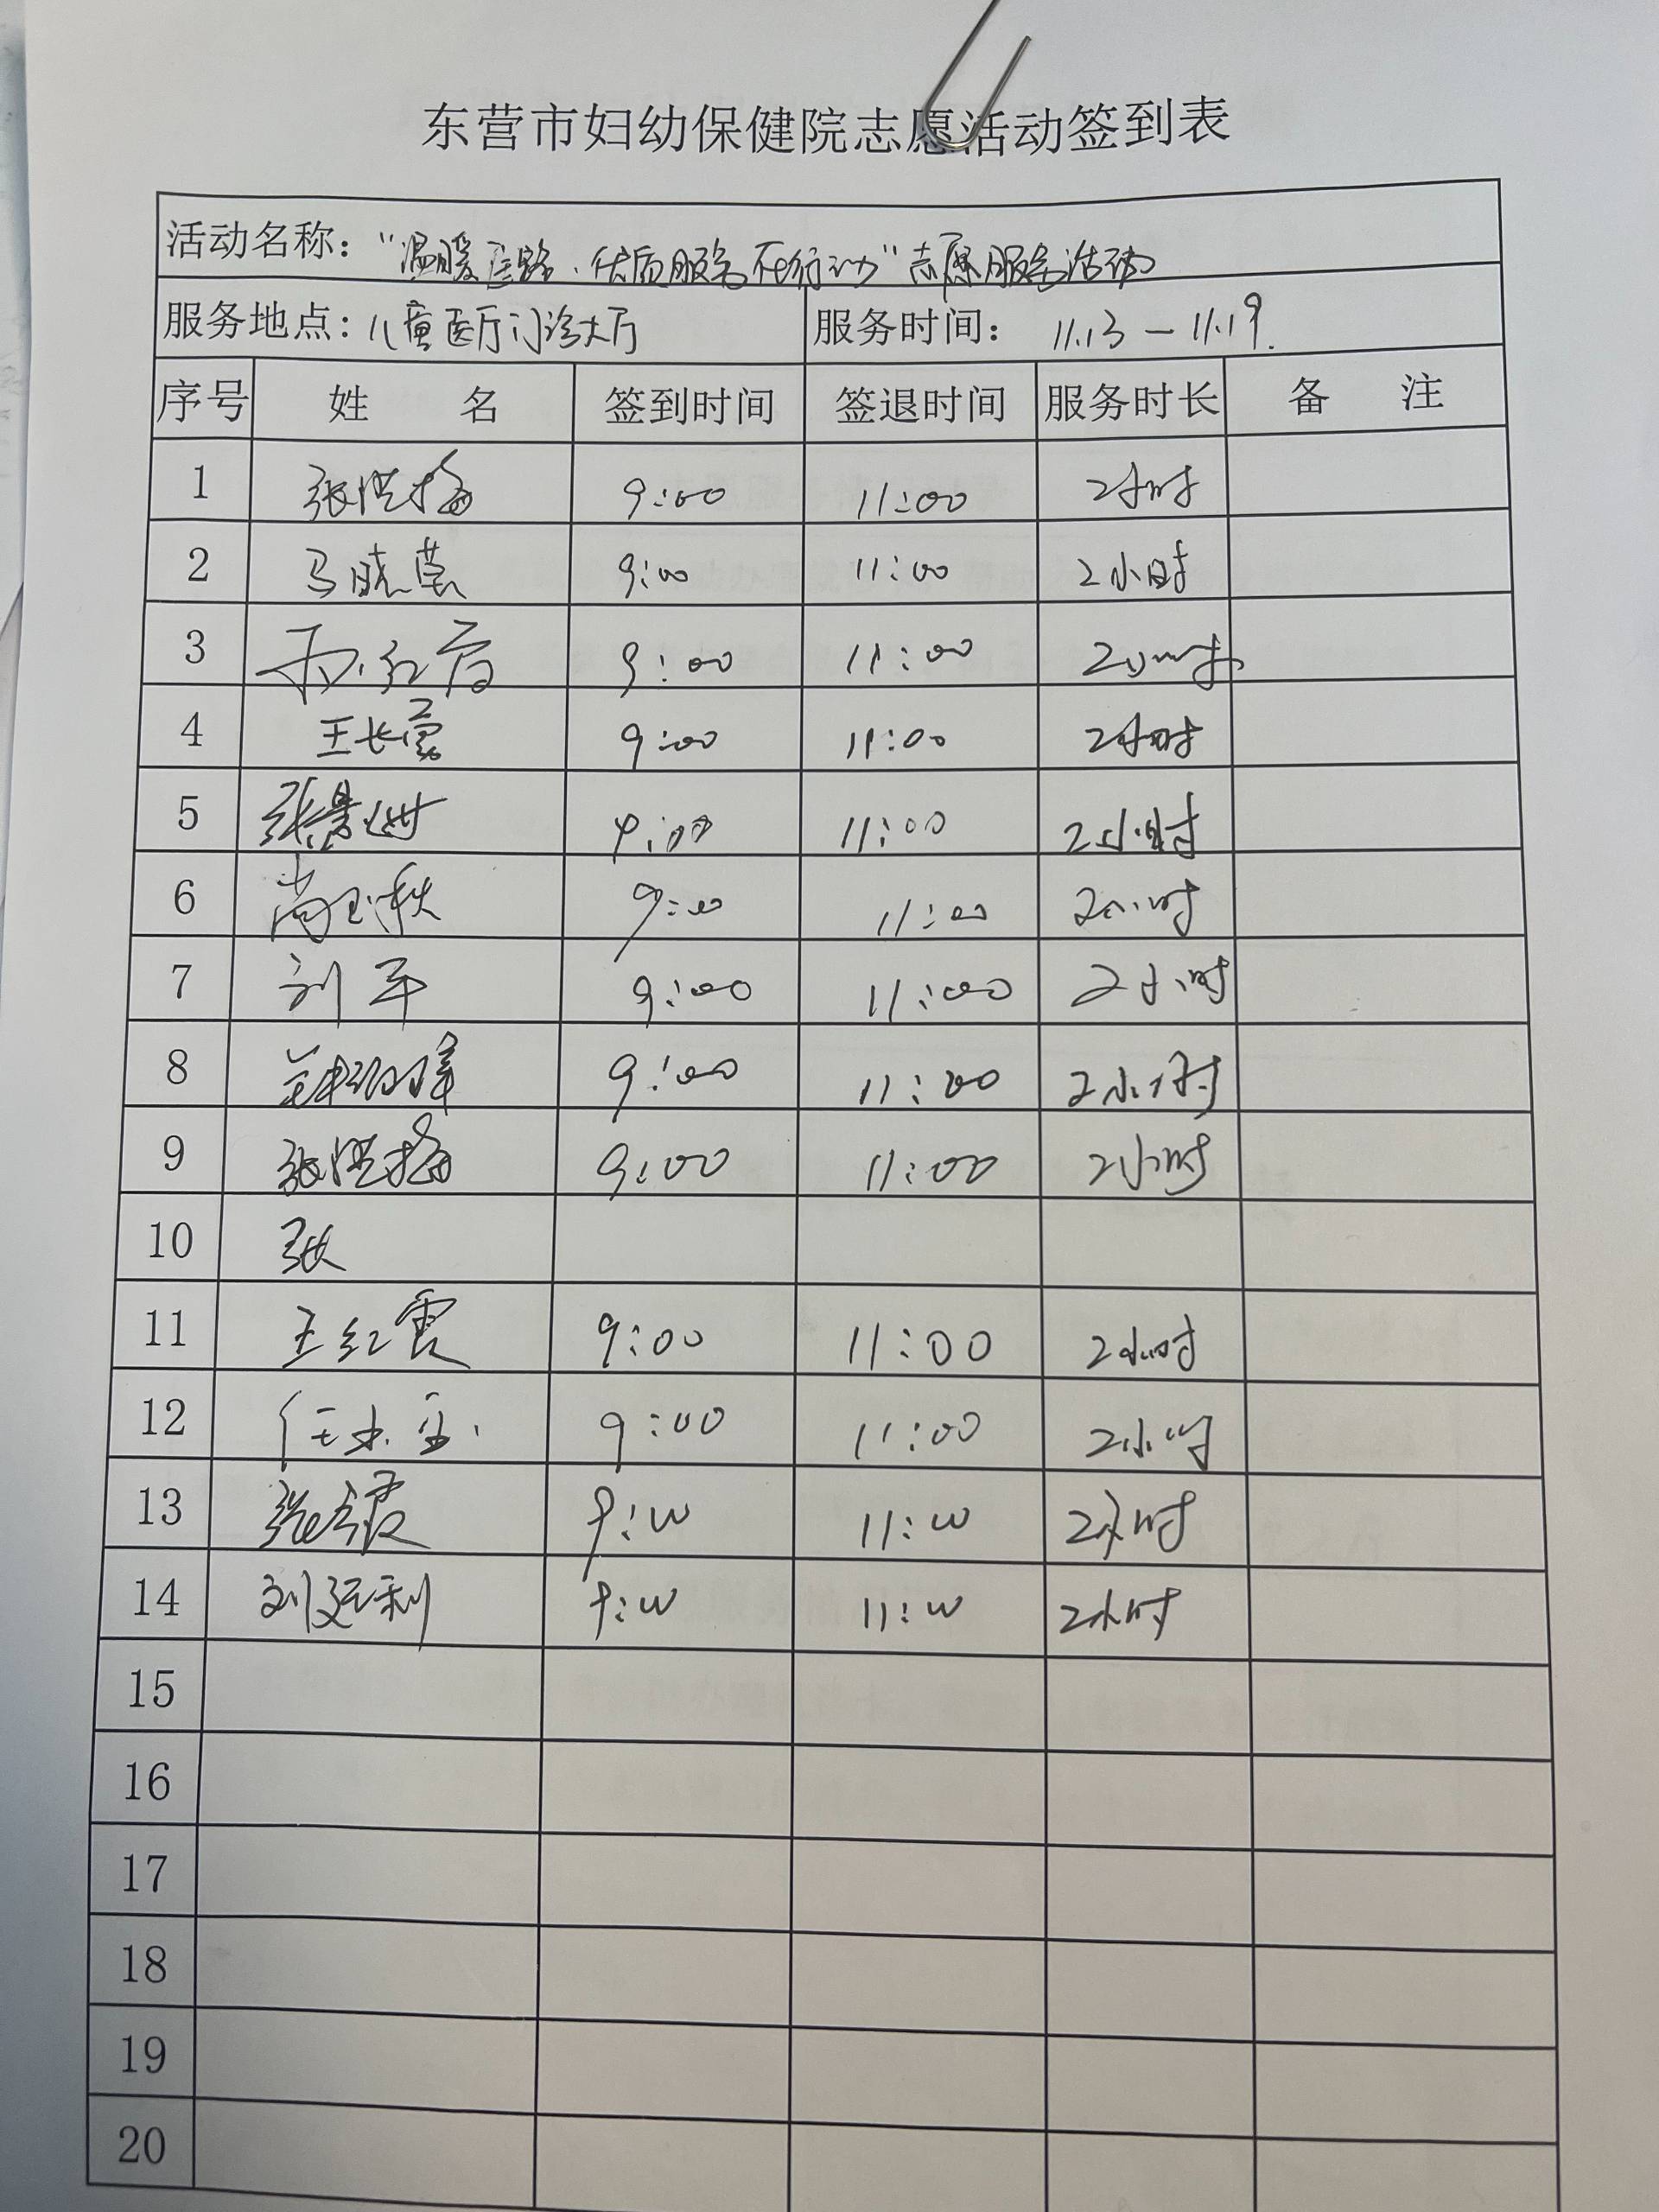 东营市妇幼保健院志愿活动签到表
活动名称：“温暖医路·优质服务在行动”志愿服务活动
服务地点：儿童医疗门诊大厅 服务时间： 11.13 — 11.19.
序号 姓 名 签到时间 签退时间 服务时长 备 注
1 张洪梅 9:00 11:00 2小时
2 马晓莹 9:00 11:00 2小时
3 9:00 11:00 2小时
4 王长 9:00 11:00 2小时
5 张景 9:00 11:00 2小时
6 尚玉秋 9:00 11:00 2小时
7 刘军 9:00 11:00 2小时
8 9:00 11:00 2小时
9 张洪梅 9:00 11:00 2小时
10 张
11 王红霞 9:00 11:00 2小时
12 任 9:00 11:00 2小时
13 张 9:00 11:00 2小时
14 刘廷利 9:00 11:00 2小时
15
16
17
18
19
20